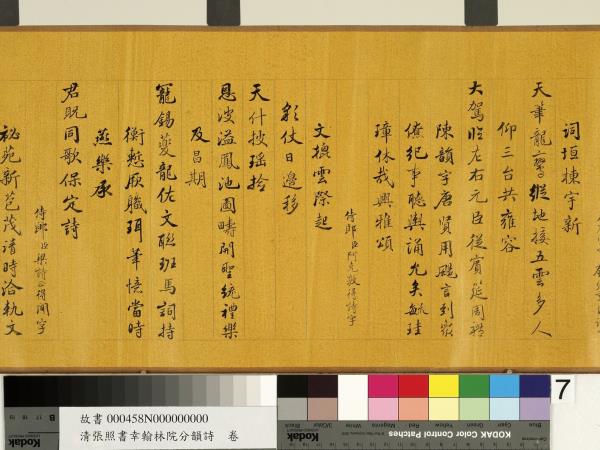 詞垣棟宇新
天筆龍文
縱地接五雲多人
仰三台共雍容
大駕臨左右元臣從賓筵周禮
陳韻字唐賢用颺言到
僚紀事聽輿誦允矣
璋休哉興雅頌
侍郎臣阿克敦得詩字
文
雲際起
彩仗日邊移
天什
瑤拾
恩波溢鳳池圖疇開聖統禮樂
及昌期
寵錫夔龍佐文聯班馬詞持
衡慙厥職珥筆憶當時
燕樂承
君貺同歌保定詩
侍郎臣梁詩正得開字
秘苑新芭茂清時洽軌文
故書 000458N000000000
清張照書幸翰林院分韻詩 卷
7
Kodak
KODAK Color Control Patches
Blue
Cyan
Green
Yellow
Red
Magenta
White
3/Color
Black